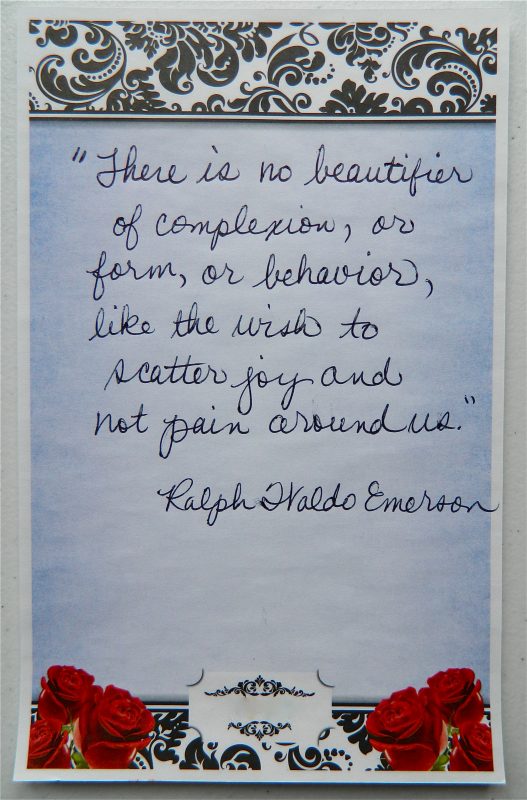 "There is no beautifier
of complexion, or
form, or behavior,
like the wish to
scatter joy and
not pain around us."
Ralph Waldo Emerson